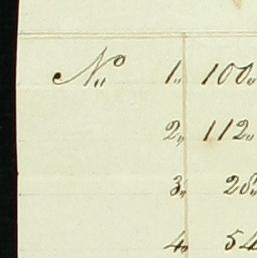 No 1,, 100
2,, 112
3,, 28
4,, 54